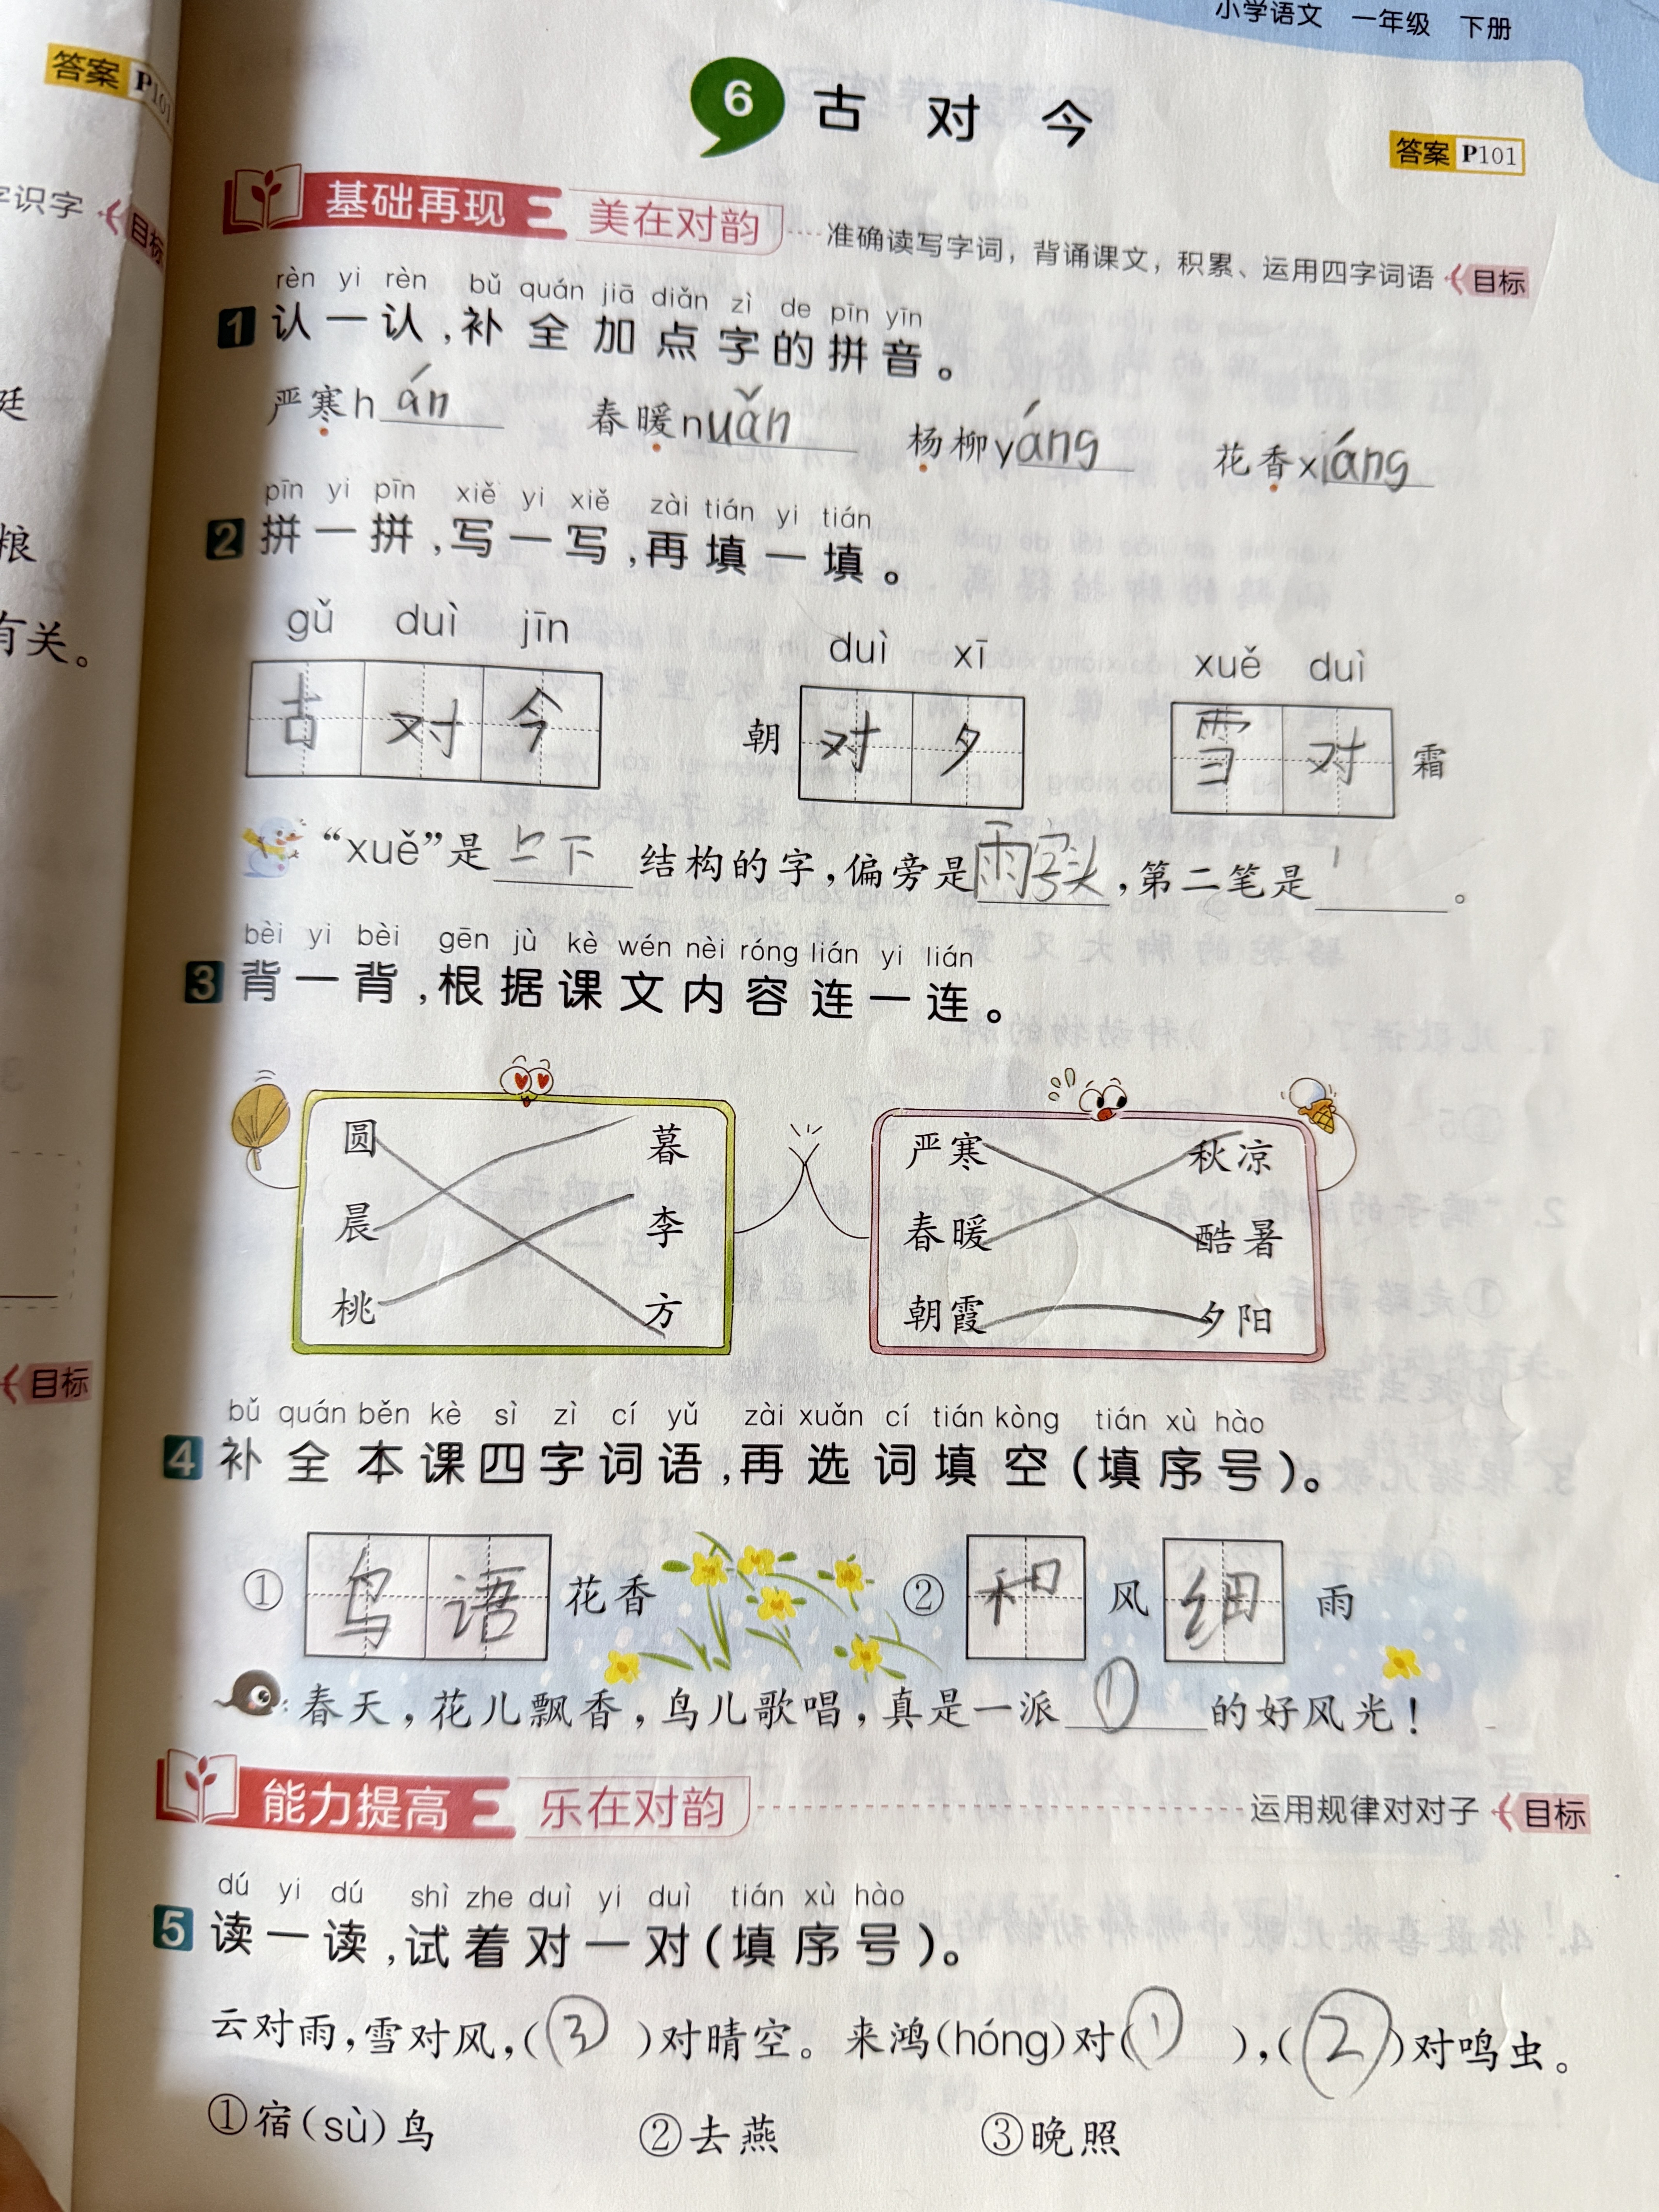 小学语文 一年级 下册
答案 P101
6 古对今
答案 P101
字识字 目标
基础再现 美在对韵 准确读写字词，背诵课文，积累、运用四字词语 目标
rèn yi rèn bǔ quán jiā diǎn zì de pīn yīn
1 认一认，补全加点字的拼音。
严寒hán 春暖nuǎn 杨柳yáng 花香xiáng
pīn yi pīn xiě yi xiě zài tián yi tián
2 拼一拼，写一写，再填一填。
gǔ duì jīn duì xī xuě duì
古对今 朝对夕 雪对霜
“xuě”是上下结构的字，偏旁是雨字头，第二笔是丶。
bèi yi bèi gēn jù kè wén nèi róng lián yi lián
3 背一背，根据课文内容连一连。
圆 暮 严寒 秋凉
晨 李 春暖 酷暑
桃 方 朝霞 夕阳
bǔ quán běn kè sì zì cí yǔ zài xuǎn cí tián kòng tián xù hào
4 补全本课四字词语，再选词填空（填序号）。
① 鸟语花香 ② 和风细雨
春天，花儿飘香，鸟儿歌唱，真是一派①的好风光！
能力提高 乐在对韵 运用规律对对子 目标
dú yi dú shì zhe duì yi duì tián xù hào
5 读一读，试着对一对（填序号）。
云对雨，雪对风，（③）对晴空。来鸿（hóng）对（①），（②）对鸣虫。
①宿（sù）鸟 ②去燕 ③晚照
廷
粮
有关。
目标